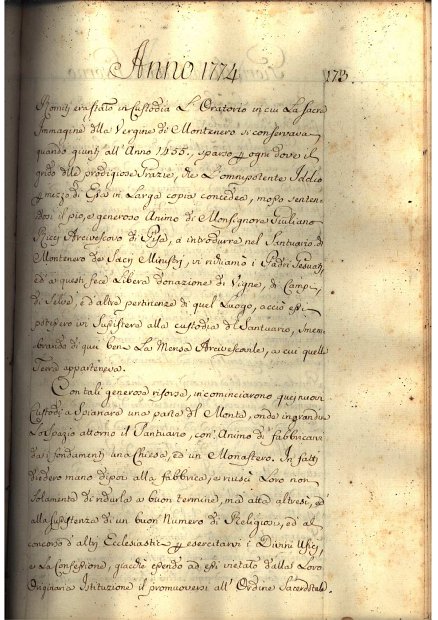 Anno 1774
173.
Romiti era stato in custodia L'Oratorio in cui La Sacra
Immagine della Vergine di Montenero si conservava
quando giunti all'Anno 1455., sparso p ogni dove il
grido delle prodigiose Grazie, che L'omnipotente Iddio
p mezzo di Essa in Larga copia concedea, mosso senten-
dosi il pio, e generoso Animo di Monsignore Giuliano
Ricci Arcivescovo di Pisa, a introdurre nel Santuario di
Montenero de Sacri Ministri, vi chiamò i Padri Gesuati,
ed a questi fece Libera donazione di Vigne, di Campi,
di Selve, e d'altre pertinenze di quel Luogo, acciò essi
potessero ivi sussistere alla custodia del Santuario, smem-
brando di quei beni La Mensa Arcivescovile, a cui quelle
Terre appartenevano.
Con tali generose risorse, incominciarono quei nuovi
Custodi a Spianare una parte del Monte, onde ingrandire
Lo Spazio attorno il Santuario, con Animo di fabbricarvi
dai fondamenti una Chiesa, ed un Monastero. In fatti
diedero mano dipoi alla fabbrica, e riuscì Loro non
solamente di ridurla a buon termine, ma atta altresì, ed
alla sussistenza di un buon Numero di Religiosi, ed al
concorso d'altri Ecclesiastici p esercitarvi i Divini Ufizj,
e La Confessione, giacchè essendo ad essi vietato dalla Loro
Originaria Istituzione il promuoversi all'Ordine Sacerdotale,